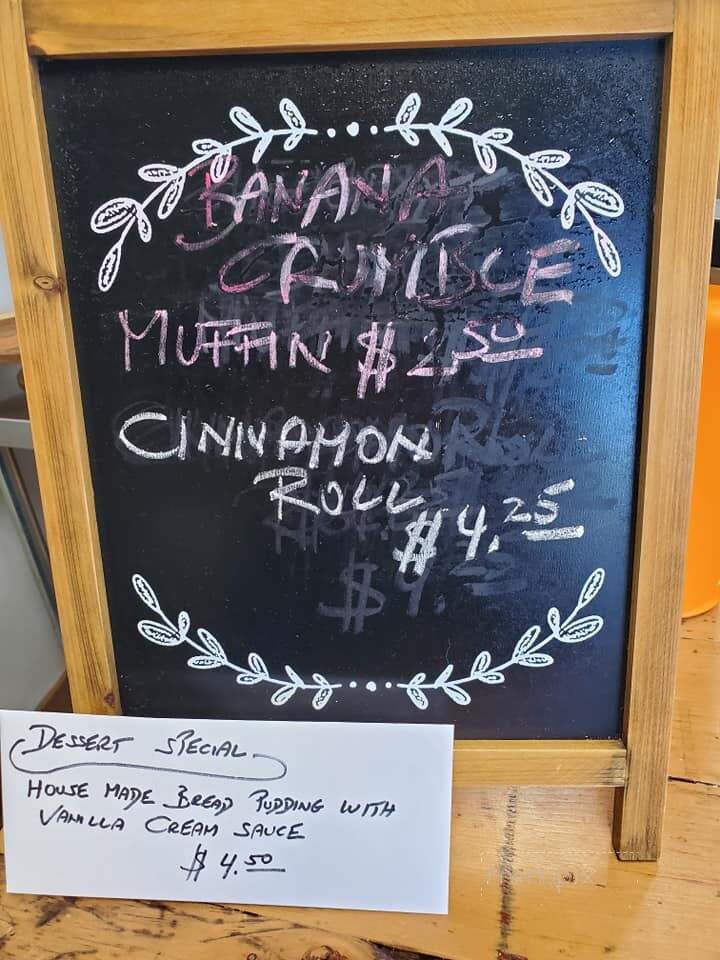 BANANA
CRUMBLE
MUFFIN $2.50
CINNAMON
ROLL
$4.25
DESSERT SPECIAL
HOUSE MADE BREAD PUDDING WITH
VANILLA CREAM SAUCE
$4.50